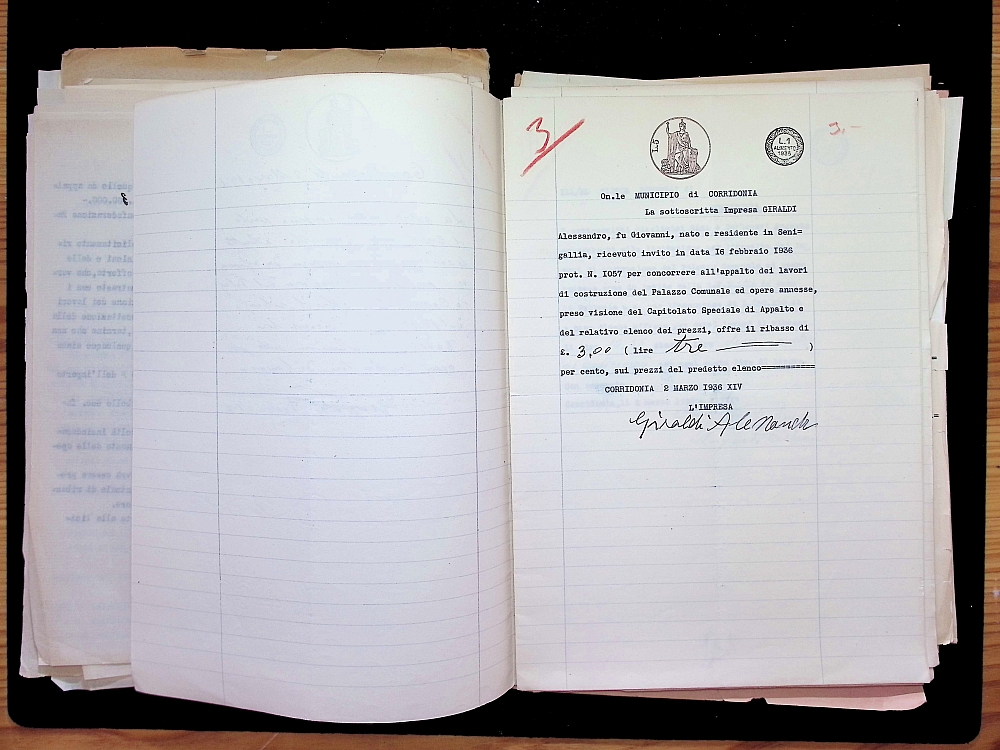 3
3,-
L.5
L.1
AUMENTO
1936
On.le MUNICIPIO di CORRIDONIA
La sottoscritta Impresa GIRALDI
Alessandro, fu Giovanni, nato e residente in Seni=
gallia, ricevuto invito in data I6 febbraio I936
prot. N. I057 per concorrere all'appalto dei lavori
di costruzione del Palazzo Comunale ed opere annesse,
preso visione del Capitolato Speciale di Appalto e
del relativo elenco dei prezzi, offre il ribasso di
£. 3,00 ( lire tre )
per cento, sui prezzi del predetto elenco==========
CORRIDONIA 2 MARZO I936 XIV
L'IMPRESA
Giraldi Alessandro